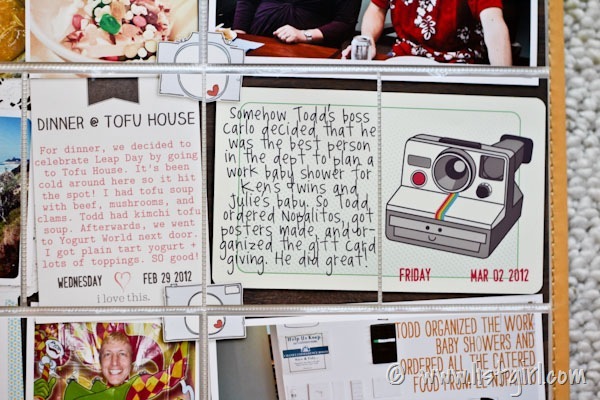 DINNER @ TOFU HOUSE
For dinner, we decided to
celebrate Leap Day by going
to Tofu House. It's been
cold around here so it hit
the spot! I had tofu soup
with beef, mushrooms, and
clams. Todd had kimchi tofu
soup. Afterwards, we went
to Yogurt World next door.
I got plain tart yogurt +
lots of toppings. SO good!
WEDNESDAY FEB 29 2012
i love this.
Somehow Todd's boss
Carlo decided that he
was the best person
in the dept to plan a
work baby shower for
Ken's twins and
Julie's baby. So Todd
ordered Nopalitos, got
posters made, and or-
ganized the gift card
giving. He did great!
FRIDAY MAR 02 2012
Help Us Keep
TODD ORGANIZED THE WORK
BABY SHOWERS AND
ORDERED ALL THE CATERED
FOOD FROM
© www.listgirl.com